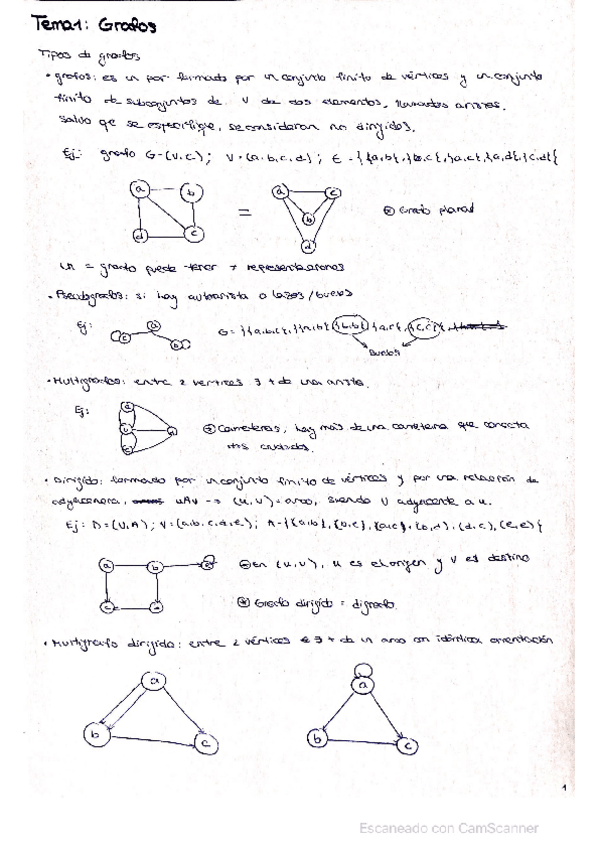 Tema 1: Grafos
Tipos de grafos
• grafos: es un par formado por un conjunto finito de vértices y un conjunto
finito de subconjuntos de V de dos elementos, llamados aristas.
Salvo que se especifique, se consideran no dirigidos.
Ej: grafo G=(V,E); V=(a,b,c,d); E={{a,b},{b,c},{a,c},{a,d},{c,d}}
a b d c = a c b d
Grafo planar
un = grafo puede tener ≠ representaciones
• Pseudografos: si hay autoarista o lazos/bucles
Ej: G={{a,b,c},{{a,b},{b,b},{a,c},{c,c}},
Bucles
• Multigrafos: entre 2 vertices ∃ + de una arista.
Ej:
Carreteras, hay más de una carretera que conecta
dos ciudades.
• Dirigido: formado por un conjunto finito de vértices y por una relación de
adyacencia, uAv → (u,v) = arco, siendo v adyacente a u.
Ej: D=(V,A); V=(a,b,c,d,e); A={(a,b),(b,e),(a,c),(b,d),(d,c),(e,e)}
En (u,v), u es el origen y v es destino
Grafo dirigido = digrafo.
• Multigrafo dirigido: entre 2 vértices ∃ + de un arco con idéntica orientación
a b c
a b c
1
Escaneado con CamScanner